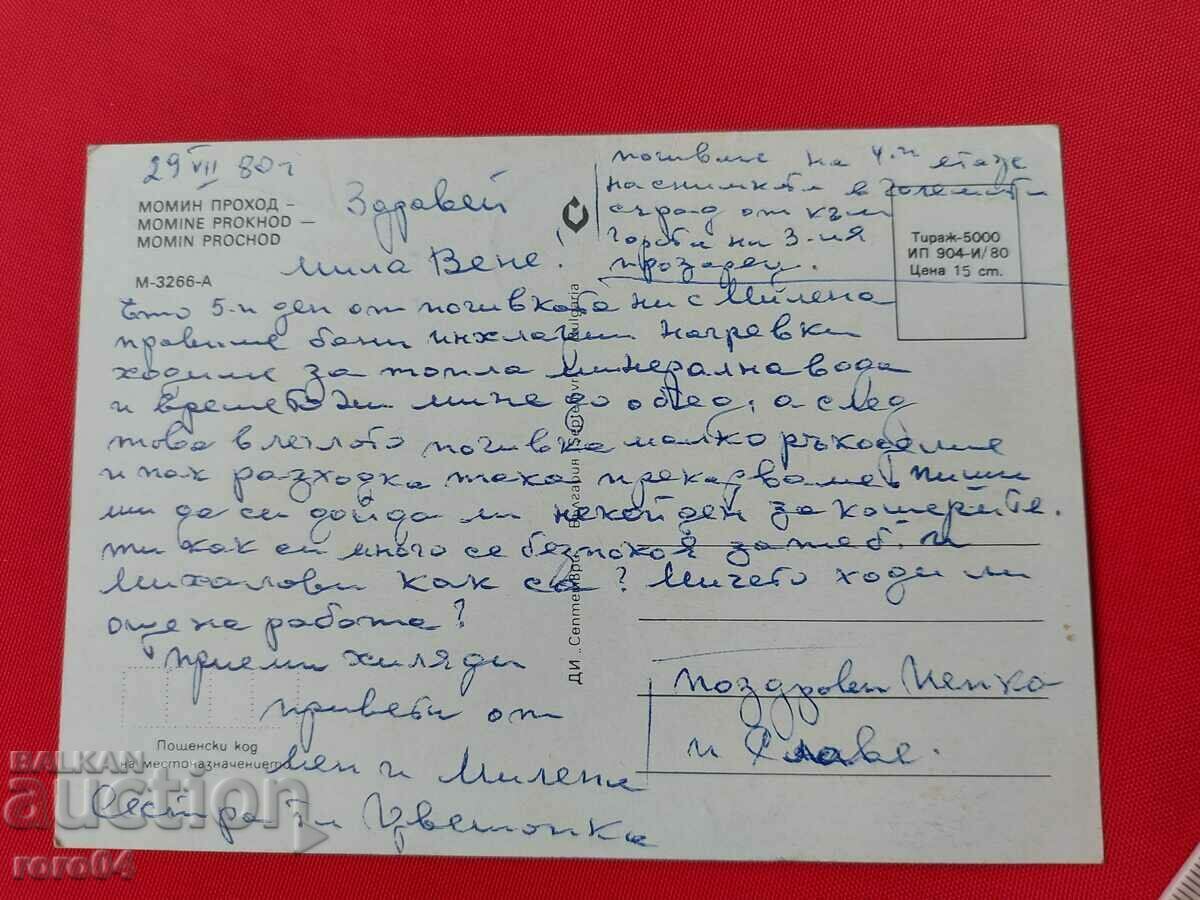 29 VII 80 г
МОМИН ПРОХОД –
MOMINE PROKHOD –
MOMIN PROCHOD
М-3266-А
Здравей
мила Вене!
Ето 5-и ден от почивката ни с Милена
правиме бани инхлации нагревки
ходиме за топла минерална вода
и времето ни мине до обед, а след
това в леглото почивка малко ръкоделие
и пак разходка така прекарваме. Пиши
ми да си дойда ли некой ден за
ти как си много се безпокоя за теб. и
Михалови как са? Мичето ходи ли
още на работа?
Приеми хиляди
привети от
мен и Милена
Сестра ти Цветанка
почивме на 4-и етаж
на снимката в големата
сграда от към
гората на 3-ия
прозорец.
Тираж-5000
ИП 904-И/80
Цена 15 ст.
ДИ „Септември" България Septemvri Bulgaria
поздрови Пепка
и Славе.
Пощенски код
на местоназначението
BALKAN
auction
roro04